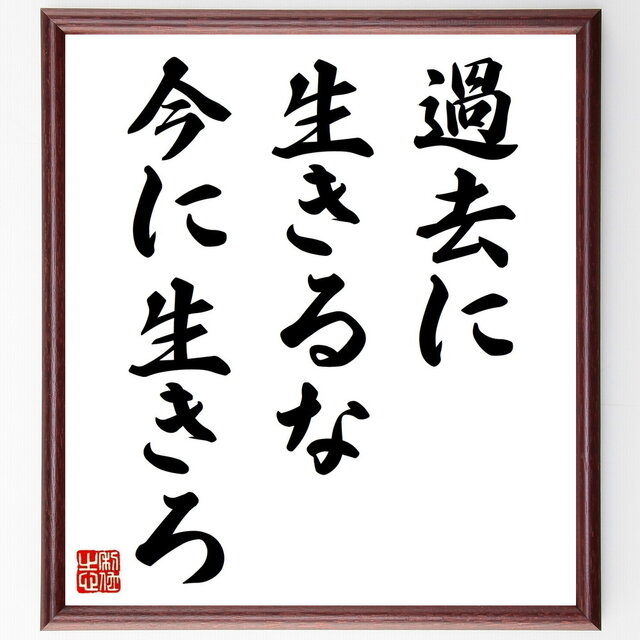 過去に
生きるな
今に生きろ